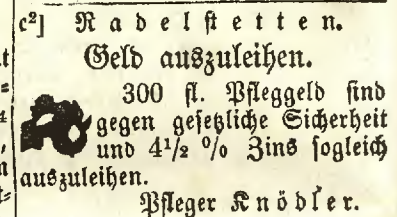 c²] Nabelstetten.
Geld auszuleihen.
300 fl. Pfleggeld sind
gegen gesetzliche Sicherheit
und 4½ % Zins sogleich
auszuleihen.
Pfleger Knödler.